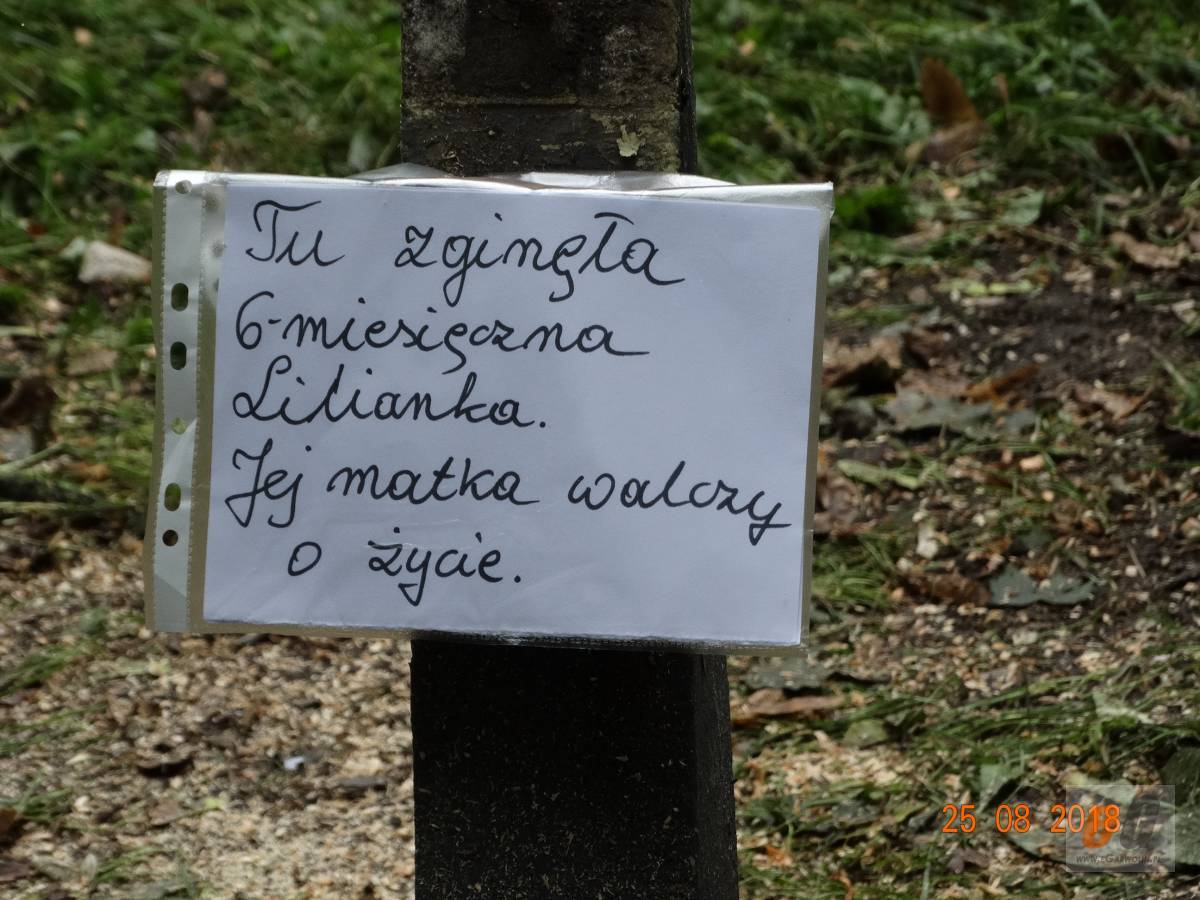 Tu zginęła
6-miesięczna
Lilianka.
Jej matka walczy
o życie.
25 08 2018
www.eGarwolin.pl